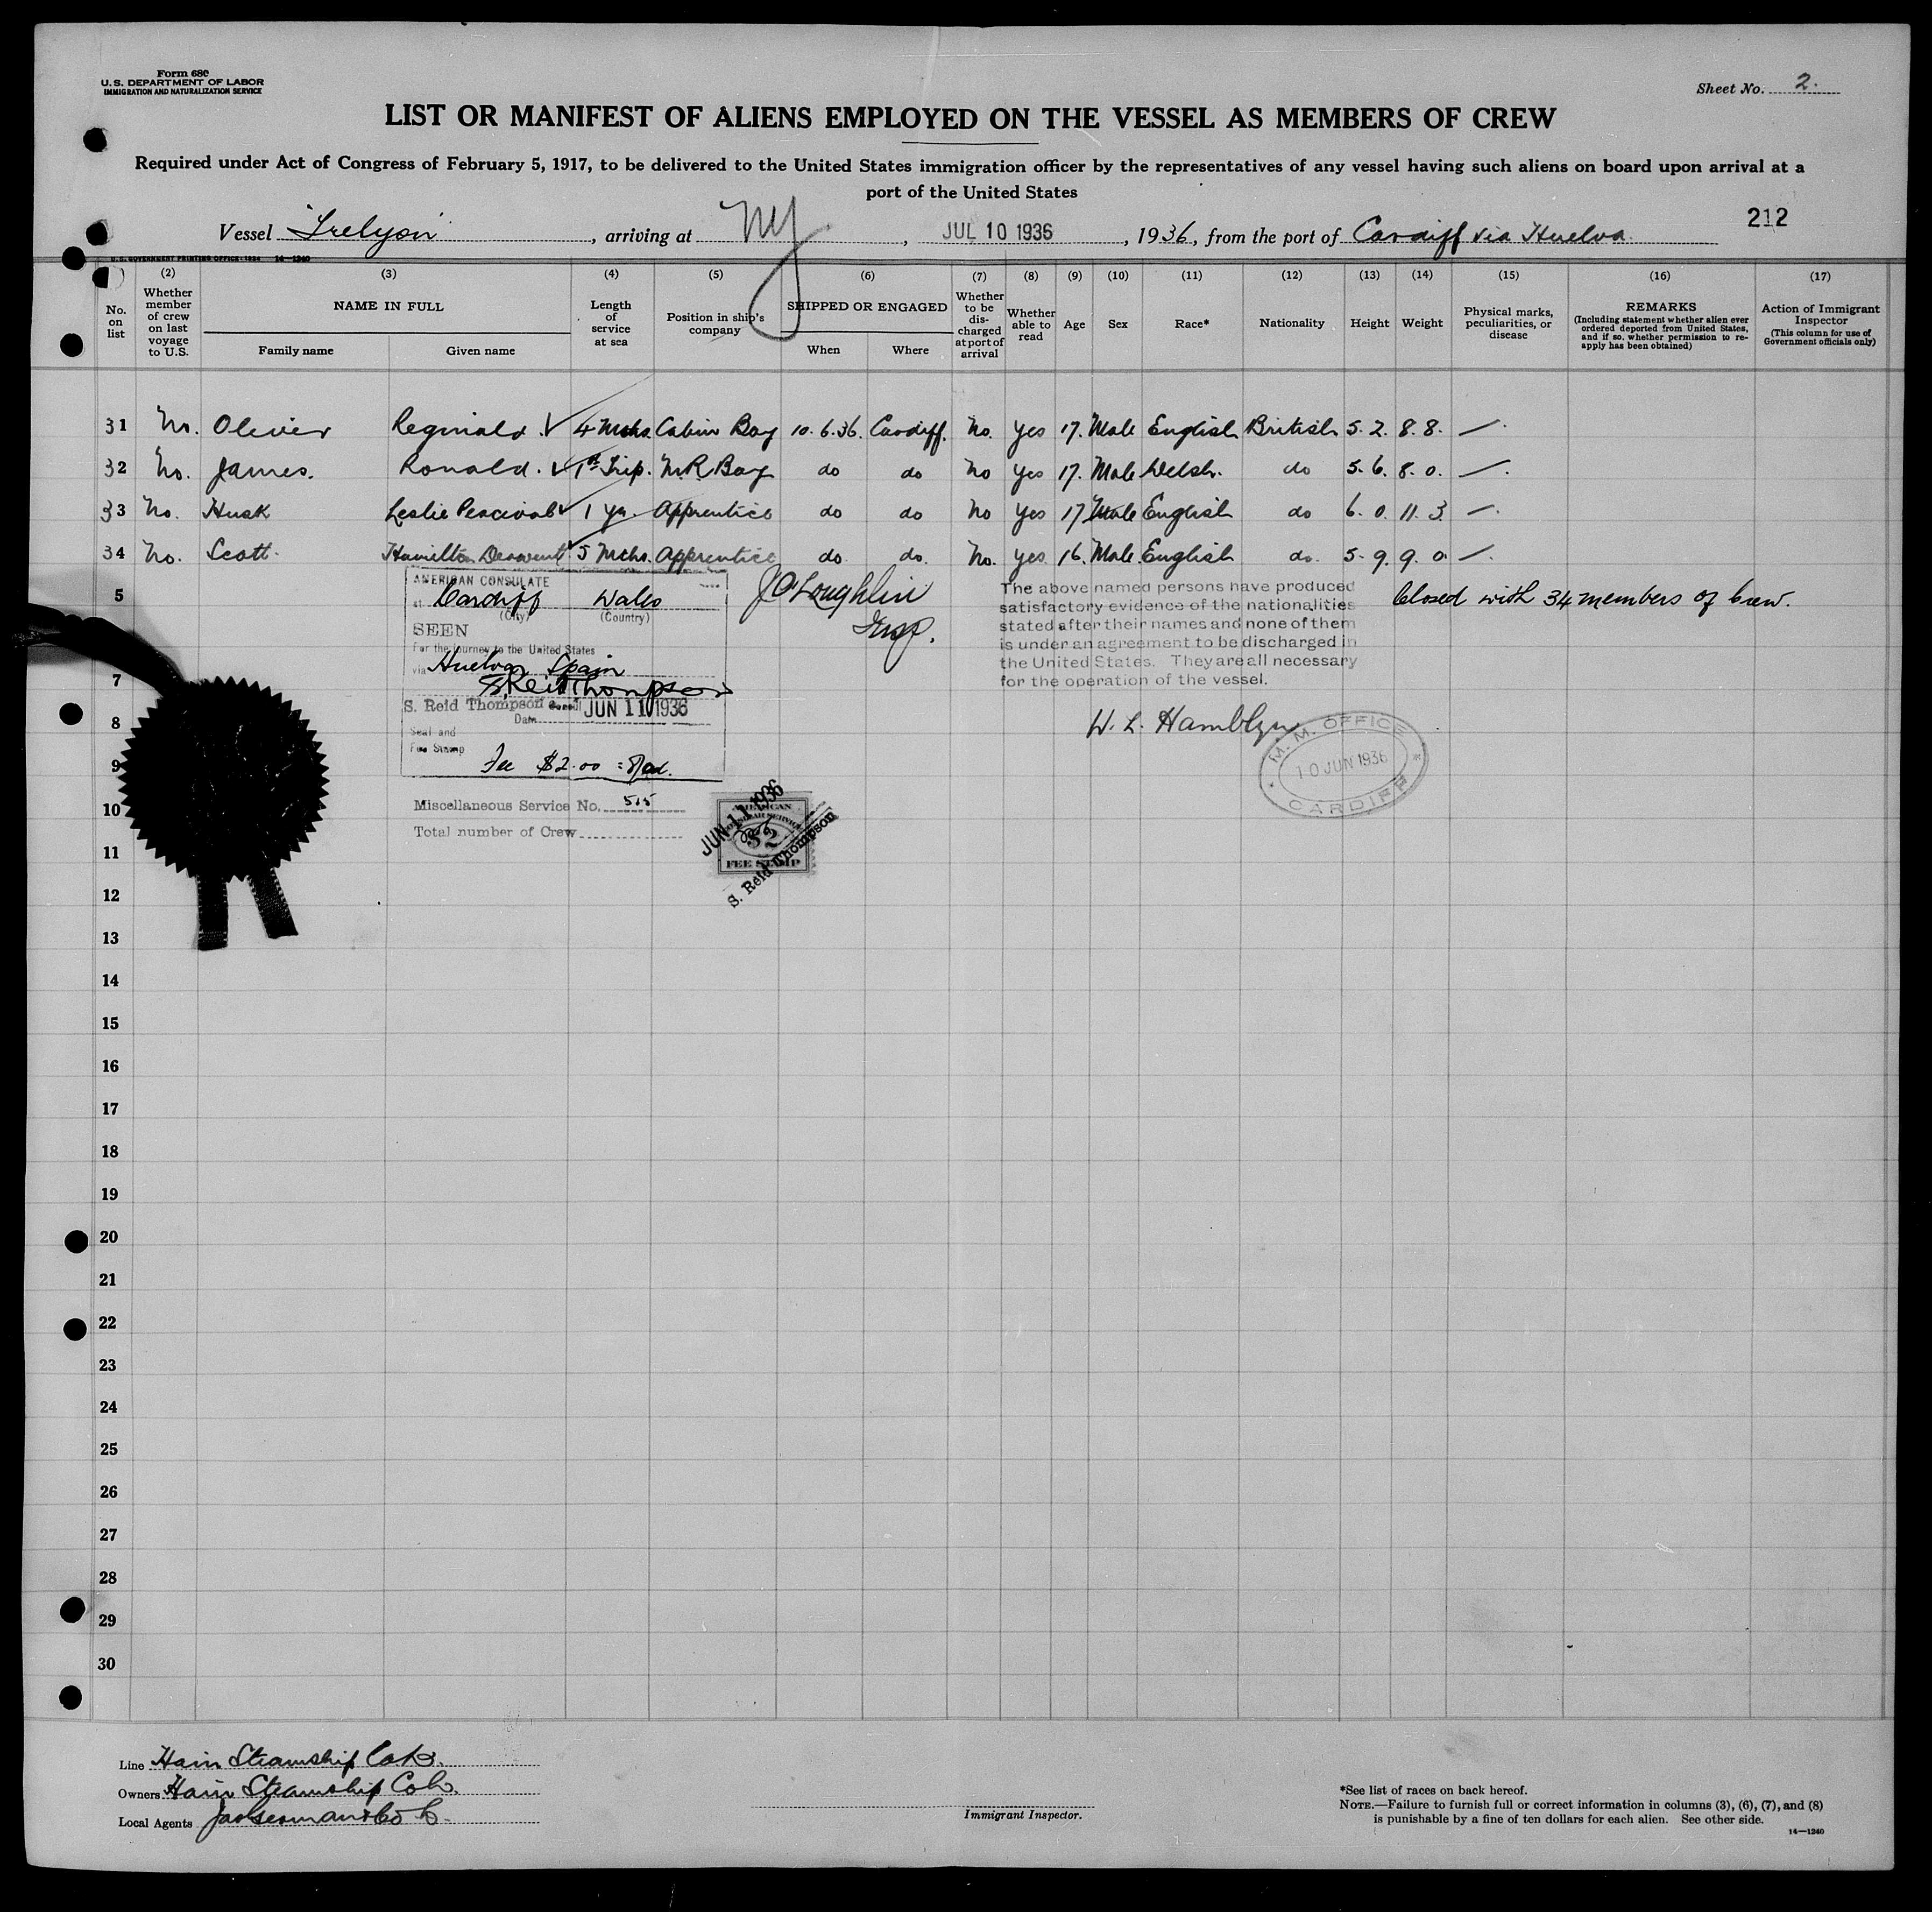 Form 680
U. S. DEPARTMENT OF LABOR
IMMIGRATION AND NATURALIZATION SERVICE
Sheet No. 2.
LIST OR MANIFEST OF ALIENS EMPLOYED ON THE VESSEL AS MEMBERS OF CREW
Required under Act of Congress of February 5, 1917, to be delivered to the United States immigration officer by the representatives of any vessel having such aliens on board upon arrival at a
port of the United States
212
Vessel "Trelyon", arriving at NY, JUL 10 1936, 1936, from the port of Cardiff via Huelva.
U. S. GOVERNMENT PRINTING OFFICE: 1934 14—1240
No. on list
(2) Whether member of crew on last voyage to U.S.
(3) NAME IN FULL
Family name
Given name
(4) Length of service at sea
(5) Position in ship's company
(6) SHIPPED OR ENGAGED
When
Where
(7) Whether to be discharged at port of arrival
(8) Whether able to read
(9) Age
(10) Sex
(11) Race*
(12) Nationality
(13) Height
(14) Weight
(15) Physical marks, peculiarities, or disease
(16) REMARKS (Including statement whether alien ever ordered deported from United States, and if so, whether permission to re-apply has been obtained)
(17) Action of Immigrant Inspector (This column for use of Government officials only)
31 No. Olivier Reginald. 4 Mths. Cabin Boy 10.6.36. Cardiff. No. Yes 17. Male English British 5. 2. 8. 8. —.
32 No. James. Ronald. 1st Trip. M.R. Boy do do No Yes 17. Male Welsh. do 5. 6. 8. 0. —.
33 No. Husk Leslie Percival 1 yr. Apprentice do do No Yes 17 Male English do 6. 0. 11. 3. —.
34 No. Scott. Hamilton Derwent 5 Mths. Apprentice do do. No. Yes 16. Male English do. 5. 9. 9. 0. —.
Closed with 34 members of Crew.
AMERICAN CONSULATE
at Cardiff Wales
(City) (Country)
SEEN
For the journey to the United States
via Huelva, Spain
S. Reid Thompson
S. Reid Thompson Consul
Date JUN 11 1936
Seal and
Fee Stamp
Fee $2.00
Miscellaneous Service No. 515
Total number of Crew
J O'Loughlin
Insp.
The above named persons have produced
satisfactory evidence of the nationalities
stated after their names and none of them
is under an agreement to be discharged in
the United States. They are all necessary
for the operation of the vessel.
W. L. Hamblyn
M. M. OFFICE
10 JUN 1936
CARDIFF
JUN 11 1936
AMERICAN
CONSULAR SERVICE
$2
FEE STAMP
S. Reid Thompson
5
7
8
9
10
11
12
13
14
15
16
17
18
19
20
21
22
23
24
25
26
27
28
29
30
Line Hain Steamship Co
Owners Hain Steamship Co
Local Agents
Immigrant Inspector.
*See list of races on back hereof.
NOTE.—Failure to furnish full or correct information in columns (3), (6), (7), and (8)
is punishable by a fine of ten dollars for each alien. See other side.
14—1240